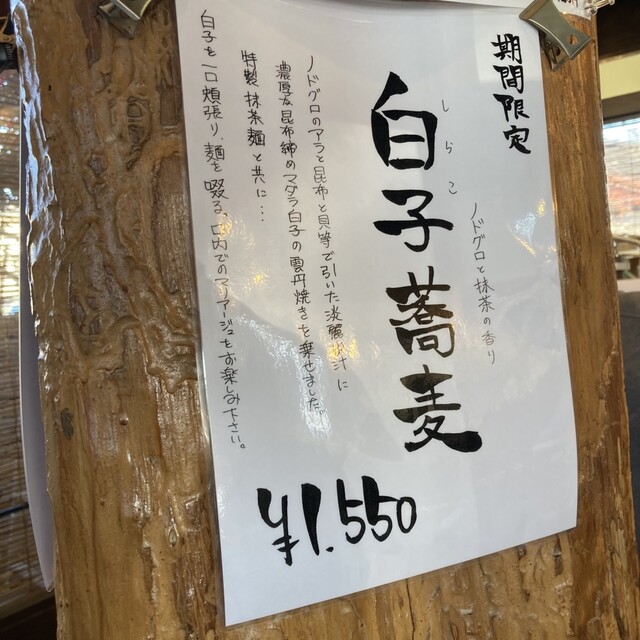 期間限定
ノドグロと抹茶の香り
しらこ
白子蕎麦
ノドグロのアラと昆布と貝等で引いた淡麗出汁に
濃厚な昆布締のマダラ白子の雲丹焼きを乗せました。
特製抹茶麺と共に…
白子を一口頬張り、麺を啜る、口内でのマリアージュをお楽しみ下さい。
¥1.550